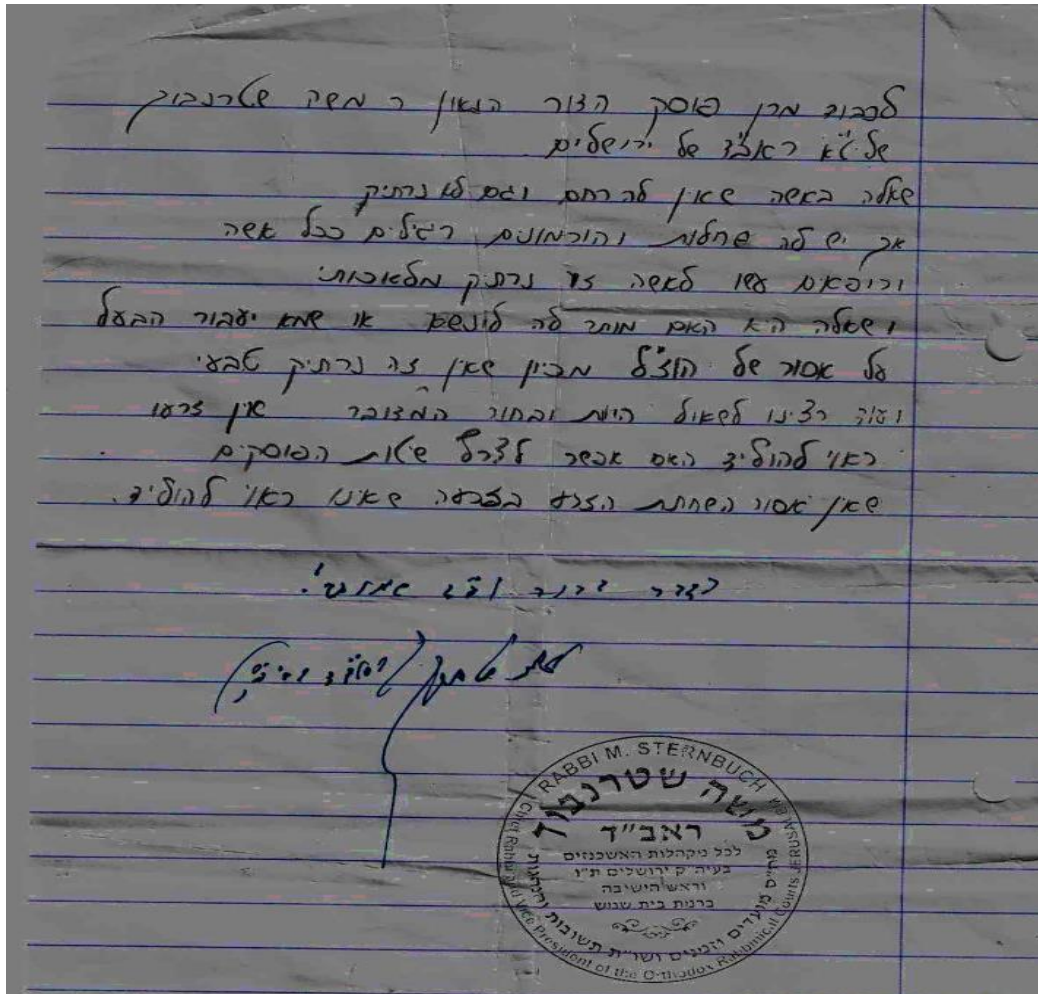 לכבוד מרן פוסק הדור הגאון ר משה שטרנבוך
שליט"א ראב"ד של ירושלים
שאלה באשה שאין לה רחם וגם לא נרתיק
אך יש לה שחלות והורמונים רגילים ככל אשה
ורופאים עשו לאשה זו נרתיק מלאכותי
ושאלה היא האם מותר לה לינשא או שמא יעבור הבעל
על אסור של הוצ"ל מכיון שאין זה נרתיק טבעי
ועוד רצינו לשאול היות ובחור המדובר אין זרעו
ראוי להוליד האם אפשר לצרף שיטות הפוסקים
שאין אסור השחתת הזרע בזרעה שאינו ראוי להוליד.
CHIEF RABBI M. STERNBUCH
משה שטרנבוך
ראב"ד
לכל מקהלות האשכנזים
בעיה"ק ירושלים ת"ו
וראש הישיבה
ברמת בית שמש
מח"ס מועדים וזמנים ושו"ת תשובות והנהגות
Chief Rabbi and Vice President of the Orthodox Rabbinical Courts JERUSALEM